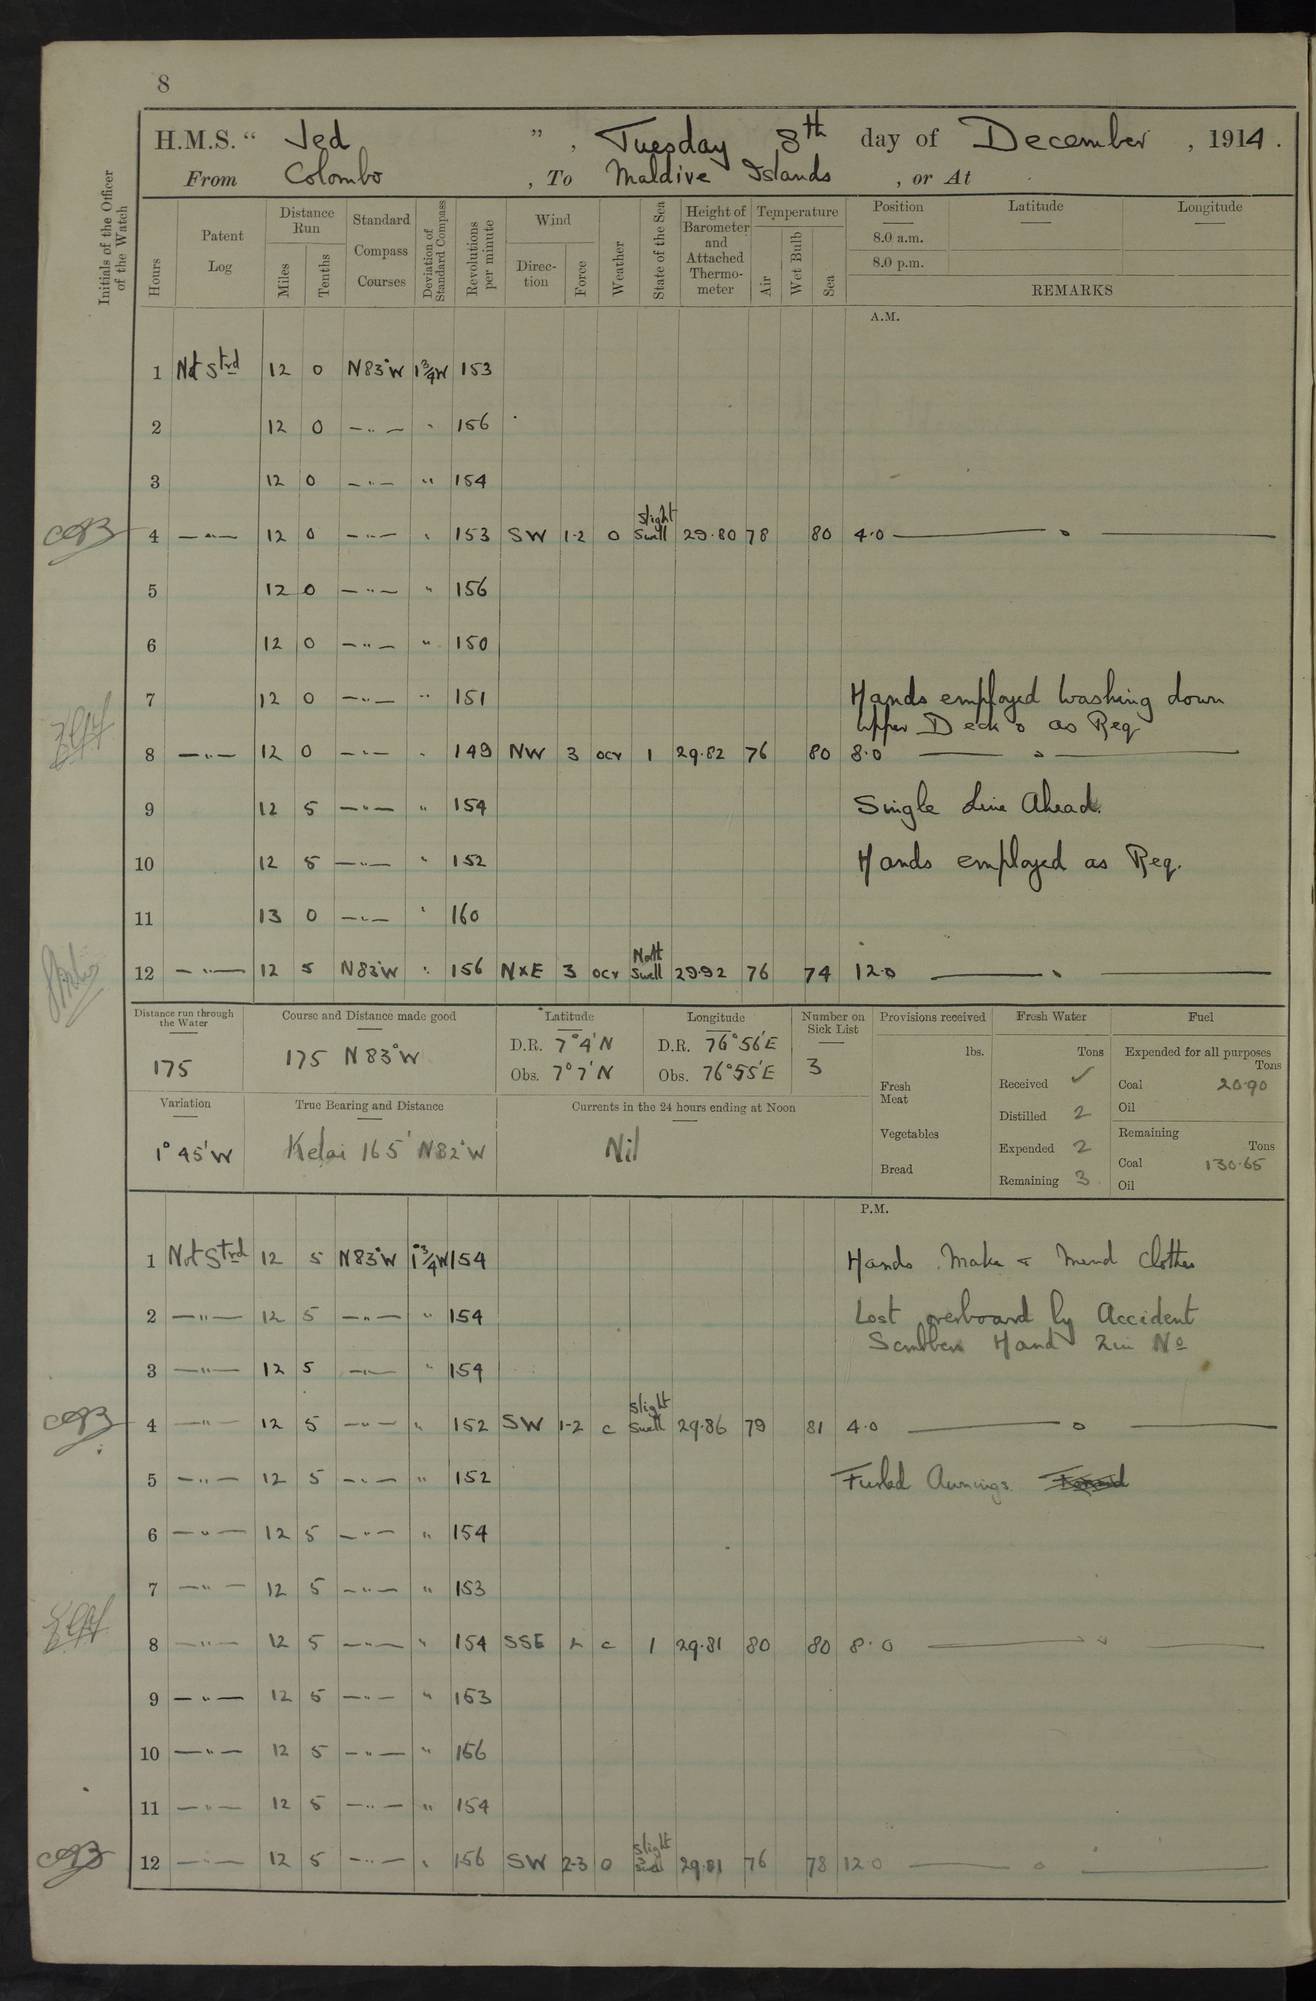 8
H.M.S. “ Jed ”, Tuesday 8th day of December, 1914.
From Colombo, To Maldive Islands, or At
Initials of the Officer of the Watch
Hours
Patent Log
Distance Run
Miles
Tenths
Standard Compass Courses
Deviation of Standard Compass
Revolutions per minute
Wind
Direction
Force
Weather
State of the Sea
Height of Barometer and Attached Thermometer
Temperature
Air
Wet Bulb
Sea
Position
8.0 a.m.
8.0 p.m.
Latitude
Longitude
REMARKS
A.M.
1 Not Strd 12 0 N83°W 1¾W 153
2 12 0 —"— " 156
3 12 0 —"— " 154
4 —"— 12 0 —"— " 153 SW 1-2 O Slight Swell 29.80 78 80 4.0
5 12 0 —"— " 156
6 12 0 —"— " 150
7 12 0 —"— " 151 Hands employed washing down
upper Decks as Req
8 —"— 12 0 —"— " 149 NW 3 ocr 1 29.82 76 80 8.0
9 12 5 —"— " 154 Single Line Ahead.
10 12 5 —"— " 152 Hands employed as Req.
11 13 0 —"— " 160
12 —"— 12 5 N83°W " 156 NxE 3 ocr Swell 29.92 76 74 12.0
Distance run through the Water
175
Course and Distance made good
175 N83°W
Latitude
D.R. 7°4'N
Obs. 7°7'N
Longitude
D.R. 76°56'E
Obs. 76°55'E
Number on Sick List
3
Provisions received
lbs.
Fresh Meat
Vegetables
Bread
Fresh Water
Tons
Received ✓
Distilled 2
Expended 2
Remaining 3
Fuel
Expended for all purposes
Tons
Coal 20.90
Oil
Remaining
Tons
Coal 130.65
Oil
Variation
1°45'W
True Bearing and Distance
Kelai 165' N82°W
Currents in the 24 hours ending at Noon
Nil
P.M.
1 Not Strd 12 5 N83°W 1¾W 154 Hands Make & Mend Clothes
2 —"— 12 5 —"— " 154 Lost overboard by Accident
Scrubbers Hand 2 in No
3 —"— 12 5 —"— " 154
4 —"— 12 5 —"— " 152 SW 1-2 c Slight Swell 29.86 79 81 4.0
5 —"— 12 5 —"— " 152 Furled Awnings
6 —"— 12 5 —"— " 154
7 —"— 12 5 —"— " 153
8 —"— 12 5 —"— " 154 SSE 2 c 1 29.81 80 80 8.0
9 —"— 12 5 —"— " 153
10 —"— 12 5 —"— " 156
11 —"— 12 5 —"— " 154
12 —"— 12 5 —"— " 156 SW 2-3 O Slight 29.81 76 78 12.0